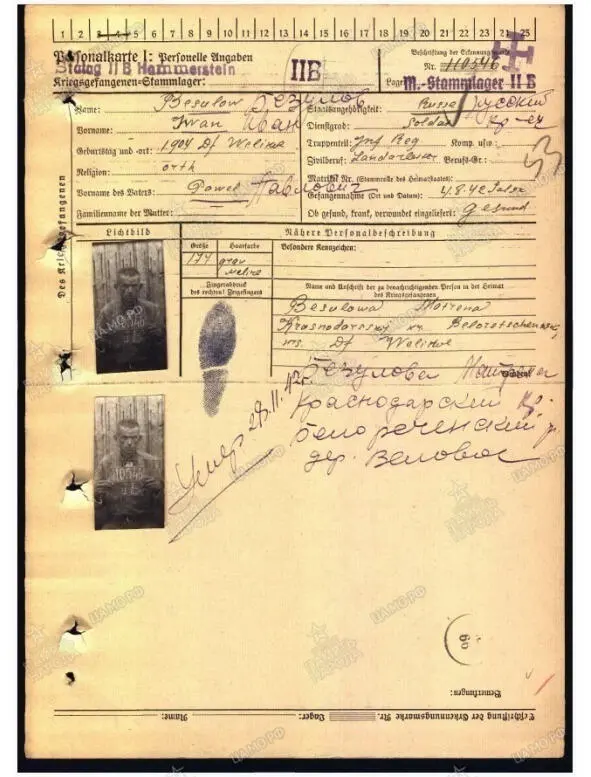 1 2 3 4 5 6 7 8 9 10 11 12 13 14 15 16 17 18 19 20 21 22 23 24 25
Personalkarte I: Personelle Angaben
Beschriftung der Erkennungsmarke
Stalag II B Hammerstein
Nr. 110546
Kriegsgefangenen-Stammlager:
II B
Lager
M.-Stammlager II B
Des Kriegsgefangenen
Name: Besulow Безулов
Staatsangehörigkeit: Russe русский
Vorname: Iwan Иван
Dienstgrad: Soldat кр-ец
Geburtstag und -ort: 1904 Df
Truppenteil: Inf Reg Komp. usw.:
Religion: orth
Zivilberuf: Berufs-Gr.:
Vorname des Vaters: Pawel Павлович
Matrikel Nr. (Stammrolle des Heimatstaates):
Gefangennahme (Ort und Datum): 4.8.42
Familienname der Mutter:
Ob gesund, krank, verwundet eingeliefert: gesund
Lichtbild
Nähere Personalbeschreibung
Größe
Haarfarbe
Besondere Kennzeichen:
174
Fingerabdruck
des rechten! Zeigefingers
Name und Anschrift der zu benachrichtigenden Person in der Heimat
des Kriegsgefangenen
Besulowa Motrena
Df
Безулова
Краснодарский кр.
белореченский р
дер.
Умер 28.11.42г.
Bemerkungen:
Beschriftung der Erkennungsmarke Nr.
Lager:
Name:
ЦАМО.РФ
ПАМЯТЬ НАРОДА